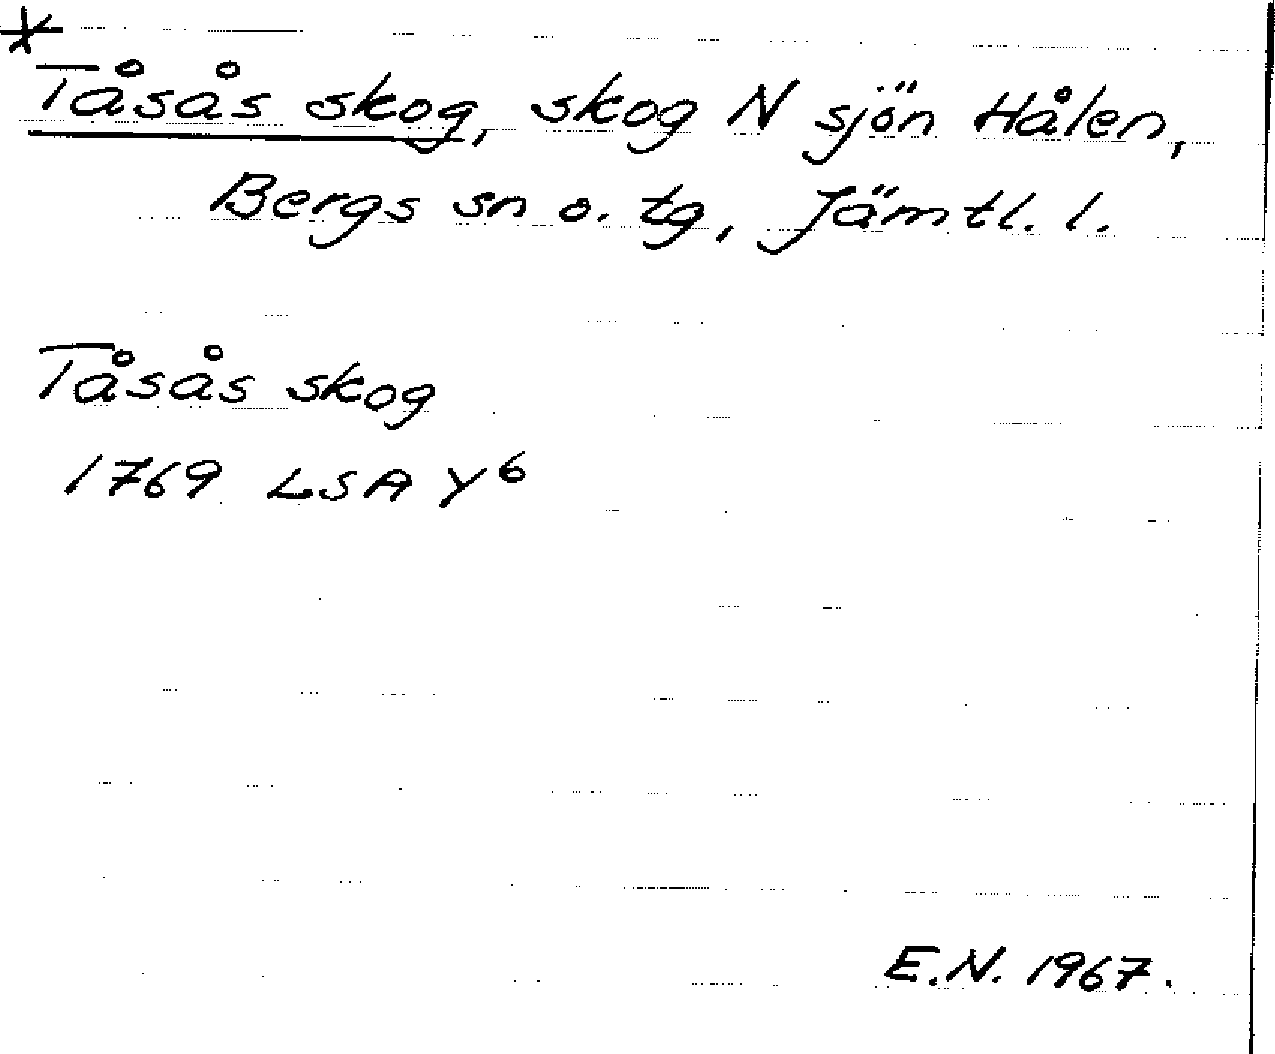 *
Tåsås skog, skog N sjön Hålen,
Bergs sn o. tg, Jämtl. l.
Tåsås skog
1769 LSA Y⁶
E.N. 1967.